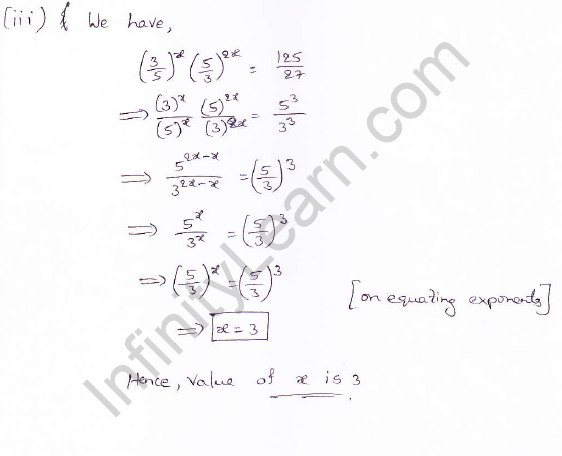 (iii) We have,
(3/5)^x (5/3)^2x = 125/27
⇒ (3)^x/(5)^x (5)^2x/(3)^2x = 5^3/3^3
⇒ 5^2x-x/3^2x-x = (5/3)^3
⇒ 5^x/3^x = (5/3)^3
⇒ (5/3)^x = (5/3)^3
[on equating exponents]
⇒ x = 3
Hence, value of x is 3.
InfinityLearn.com